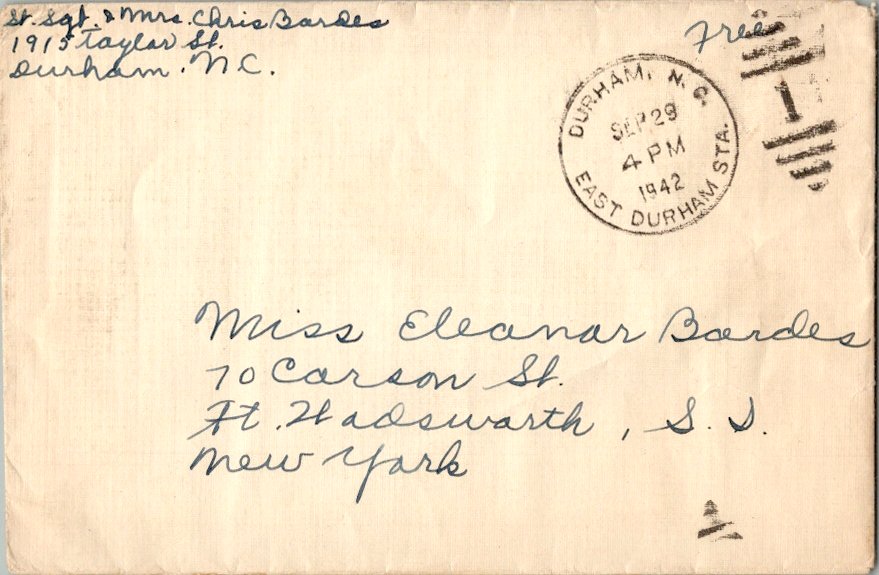 St. Sgt. & Mrs. Chris Bardes
1915 Taylor St.
Durham. N.C.
Free
DURHAM, N.C.
SEP 29
4 PM
1942
EAST DURHAM STA.
1
Miss Eleanor Bardes
70 Carson St.
Ft. Wadsworth, S. I.
New York